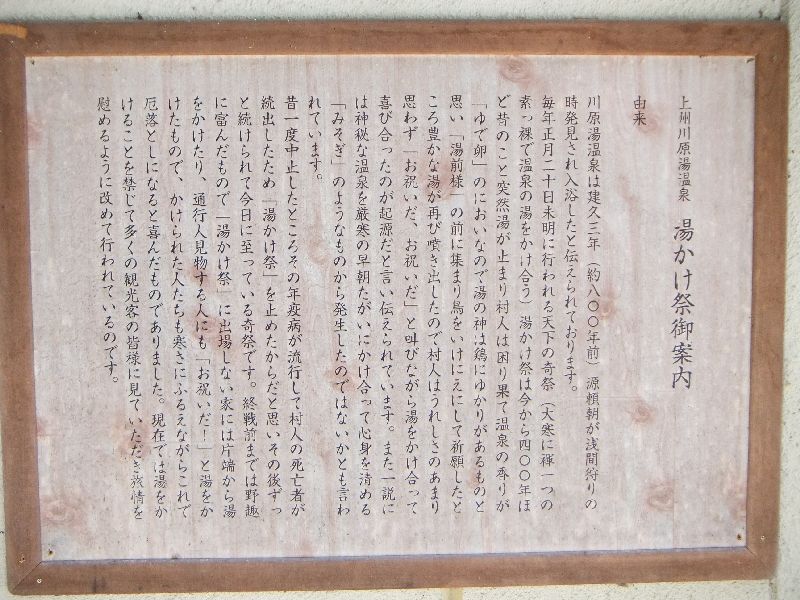 上州川原湯温泉 湯かけ祭御案内
由来
川原湯温泉は建久三年（約八〇〇年前）源頼朝が浅間狩りの
時発見され入浴したと伝えられております。
毎年正月二十日未明に行われる天下の奇祭（大寒に褌一つの
素っ裸で温泉の湯をかけ合う）湯かけ祭は今から四〇〇年ほ
ど昔のこと突然湯が止まり村人は困り果て温泉の香りが
「ゆで卵」のにおいなので湯の神は鶏にゆかりがあるものと
思い「湯前様」の前に集まり鳥をいけにえにして祈願したと
ころ豊かな湯が再び噴き出したので村人はうれしさのあまり
思わず「お祝いだ、お祝いだ」と叫びながら湯をかけ合って
喜び合ったのが起源だと言い伝えられています。また一説に
は神秘な温泉を厳寒の早朝たがいにかけ合って心身を清める
「みそぎ」のようなものから発生したのではないかとも言わ
れています。
昔一度中止したところその年疫病が流行して村人の死亡者が
続出したため「湯かけ祭」を止めたからだと思いその後ずっ
と続けられて今日に至っている奇祭です。終戦前までは野趣
に富んだもので「湯かけ祭」に出場しない家には片端から湯
をかけたり、通行人見物する人にも「お祝いだ！」と湯をか
けたもので、かけられた人たちも寒さにふるえながらこれで
厄落としになると喜んだものでありました。現在では湯をか
けることを禁じて多くの観光客の皆様に見ていただき旅情を
慰めるように改めて行われているのです。